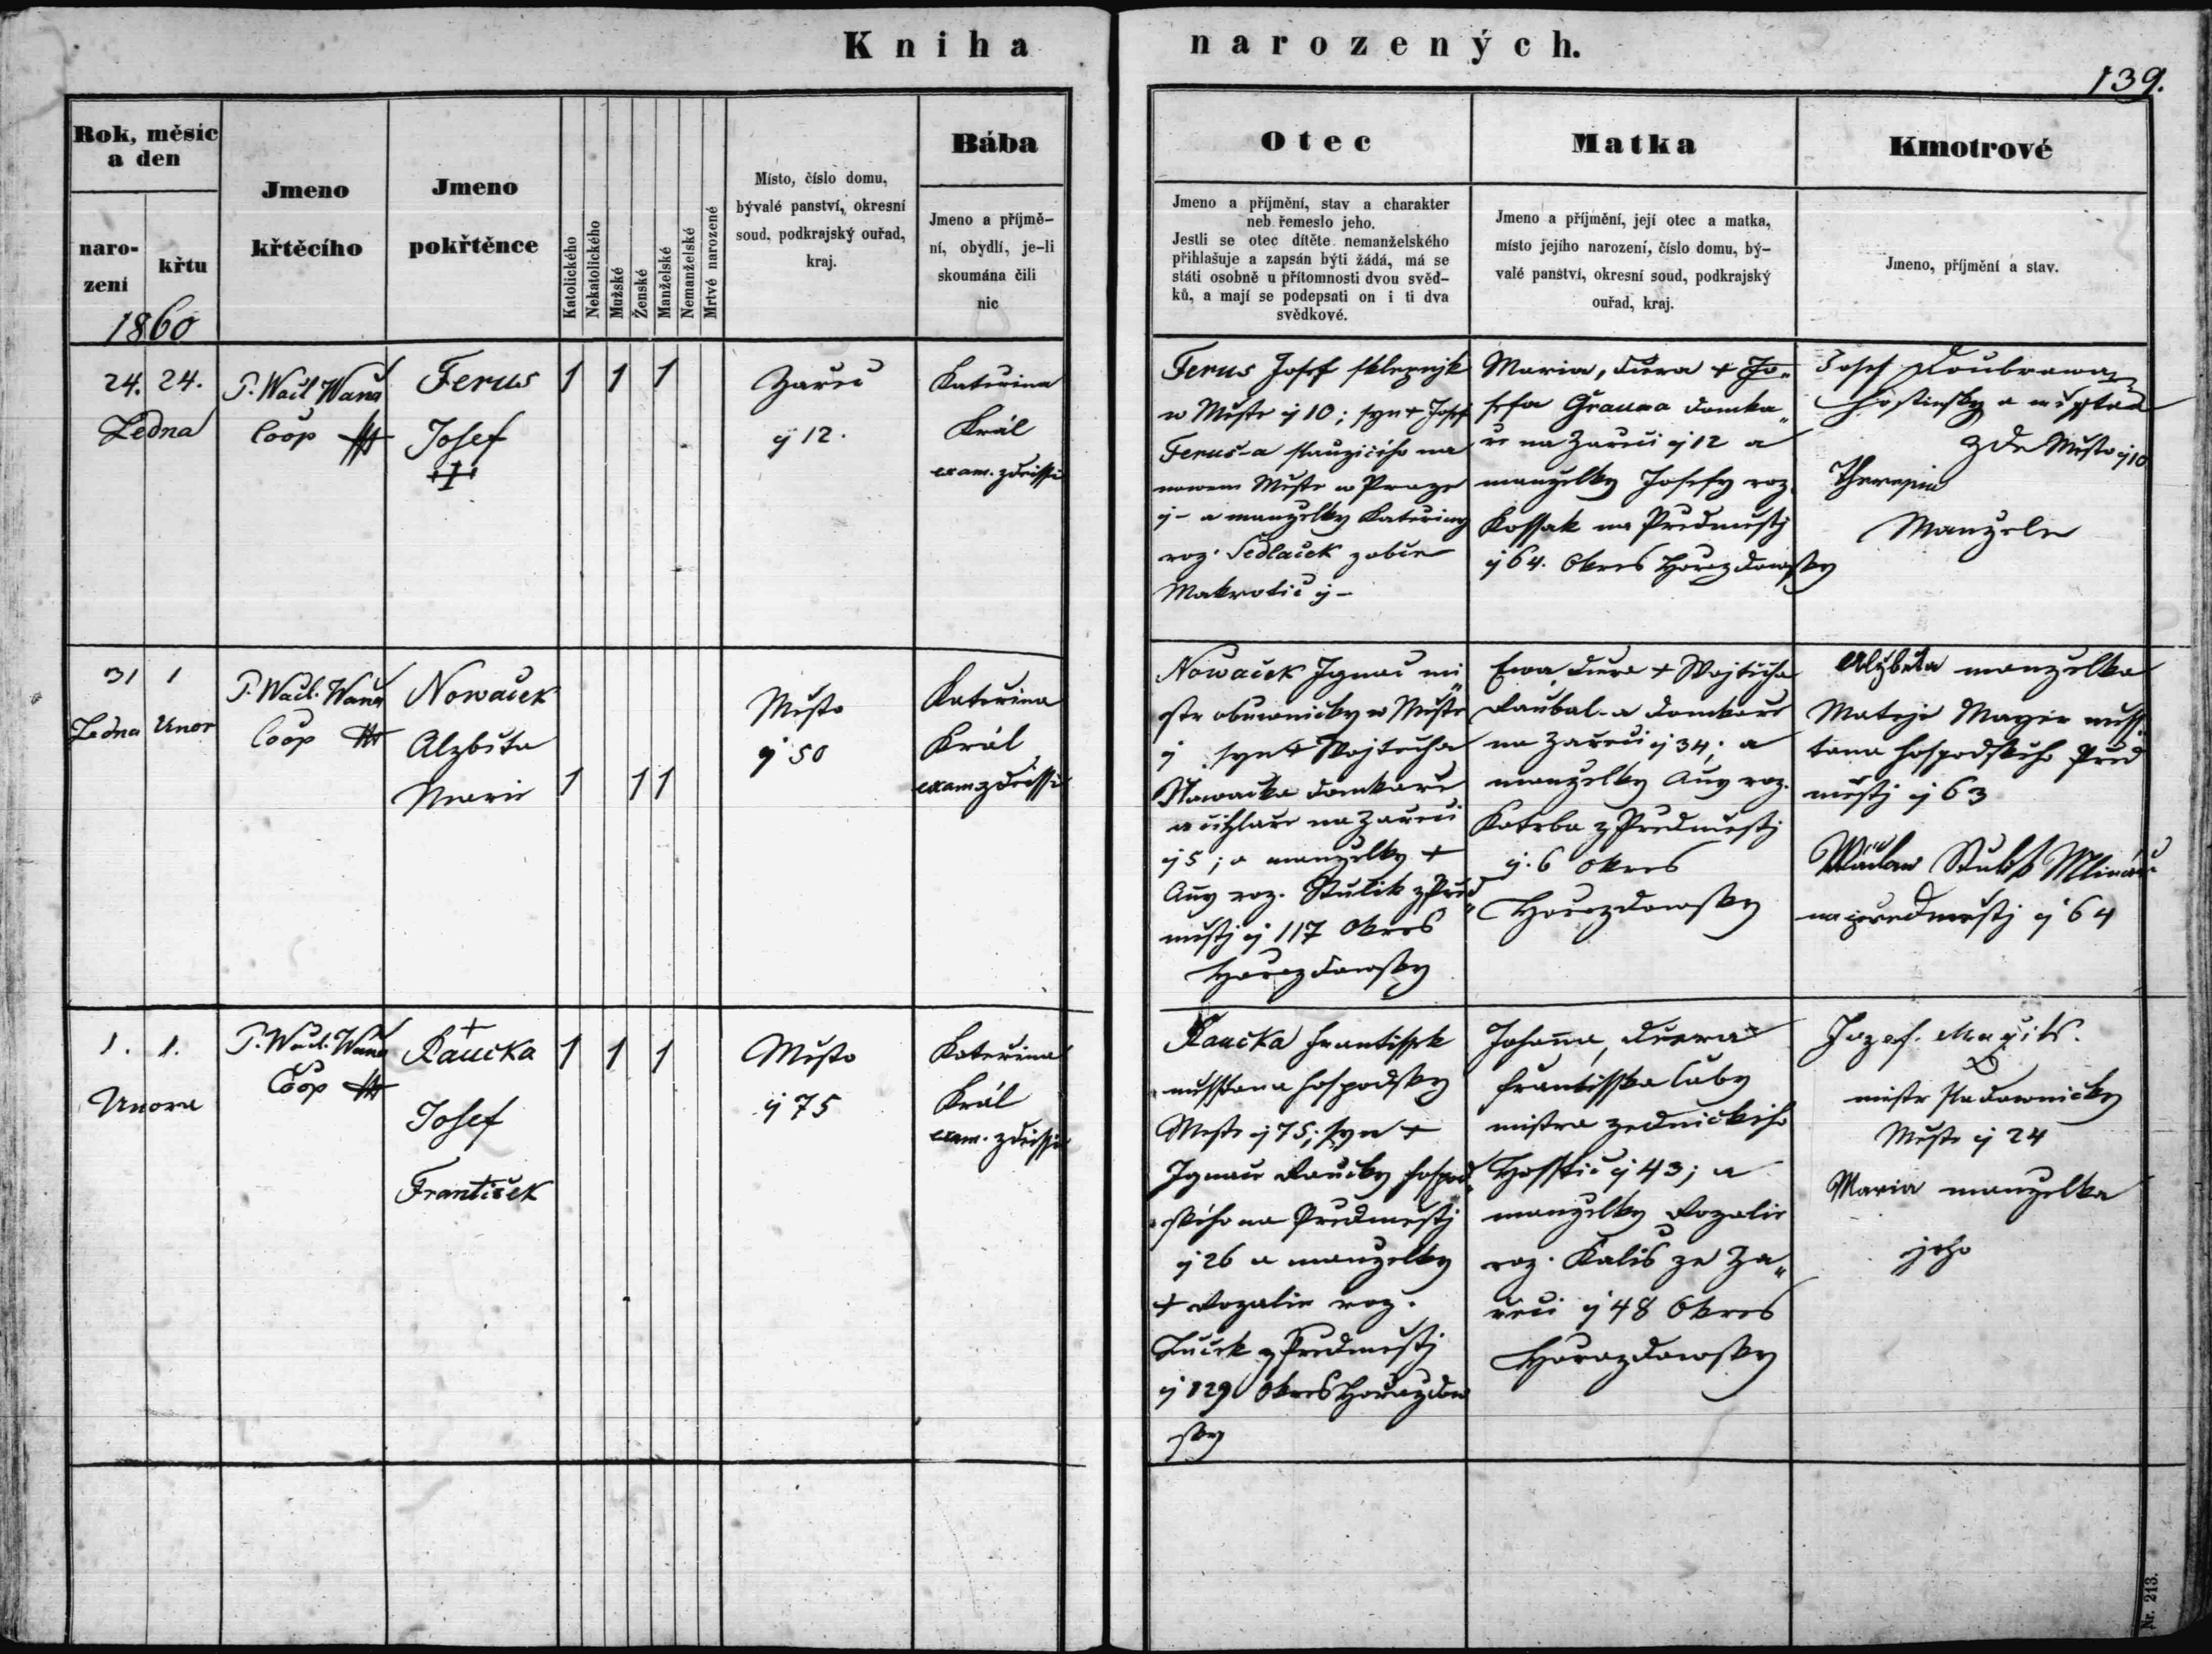 Kniha narozených.
139.
Rok, měsíc
a den
naro-
zení
křtu
1860
Jmeno
křtěcího
Jmeno
pokřtěnce
Katolického
Nekatolického
Mužské
Ženské
Manželské
Nemanželské
Mrtvé narozené
Místo, číslo domu,
bývalé panství, okresní
soud, podkrajský ouřad,
kraj.
Bába
Jmeno a příjmě-
ní, obydlí, je-li
skoumána čili
nic
Otec
Jmeno a příjmění, stav a charakter
neb řemeslo jeho.
Jestli se otec dítěte nemanželského
přihlašuje a zapsán býti žádá, má se
státi osobně u přítomnosti dvou svěd-
ků, a mají se podepsati on i ti dva
svědkové.
Matka
Jmeno a příjmění, její otec a matka,
místo jejího narození, číslo domu, bý-
valé panství, okresní soud, podkrajský
ouřad, kraj.
Kmotrové
Jmeno, příjmění a stav.
24. 24.
Ledna
P. Wacl Wana
Coop
Ferus
Josef
1 1 1
Zářeč
č 12.
Kateřina
Král
exam. zdeissi
Ferus Josef sklepnjk
w Městě č 10; syn + Josef
Ferus-a slaužicího na
nowem Městě w Praze
č – a manželky Kateřiny
roz. Sedlaček z obce
Makrotic č –
Maria, dcera + Jo„
sefa Grauma domka„
ře na Zářečí č 12 a
manželky Josefy roz.
Kossak na Předměstj
č 64. Okres Horazdowsky
Josef Doubrawa
hostinsky a
zde Město č 10
Manžele
31 1
Ledna Unor
P. Wacl. Wana
Coop
Nowaček
Alzběta
Marie
1 1 1
Město
č 50
Kateřina
Král
exam zdeissi
Nowaček Ignac mi„
str obuwnicky w Městě
č syn + Wojtěcha
Nowačka domkaře
a cihlaře na Zářečí
č 5; a manželky +
Any roz. Stulik z Před„
městj č 117 Okres
Horazdowsky
Ewa, dcera + Wojtěcha
Daubal-a domkaře
na Zářečí č 34; a
manželky Any roz.
Kotrba z Předměstj
č. 6 okres
Horazdowsky
Alžběta manželka
Matěje Mayer měss„
tana hospodského Před
městj č 63
Wáclaw Mlinář
na předměstj č 64
1. 1.
Unora
P. Wacl. Wana
Coop
+
Raučka
Josef
František
1 1 1
Město
č 75
Kateřina
Král
exam. zdeissi
Raučka Frantissek
měsstana hospodsky
Městě č 75; syn +
Ignace Raučky hospod„
ského na Předměstj
č 26 a manželky
+ Rozalie roz.
z Předměstj
č 129 Okres Horazdow
sky
Johana, dcera
Frantisska Caby
mistra zednického
Hosstic č 43; a
manželky Rozalie
roz. Kališ ze Za„
řečí č 48 Okres
Horazdowsky
Jozef
mistr
Městě č 24
Maria manželka
jeho
Nr. 213.